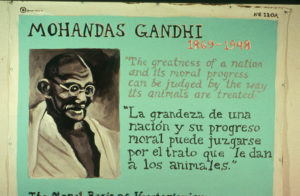 MOHANDAS GANDHI
1869-1948
"The greatness of a nation
and its moral progress
can be judged by the way
its animals are treated"
"La grandeza de una
nación y su progreso
moral puede juzgarse
por el trato que le dan
a los animales."
The Moral Basis of Vegetarianism